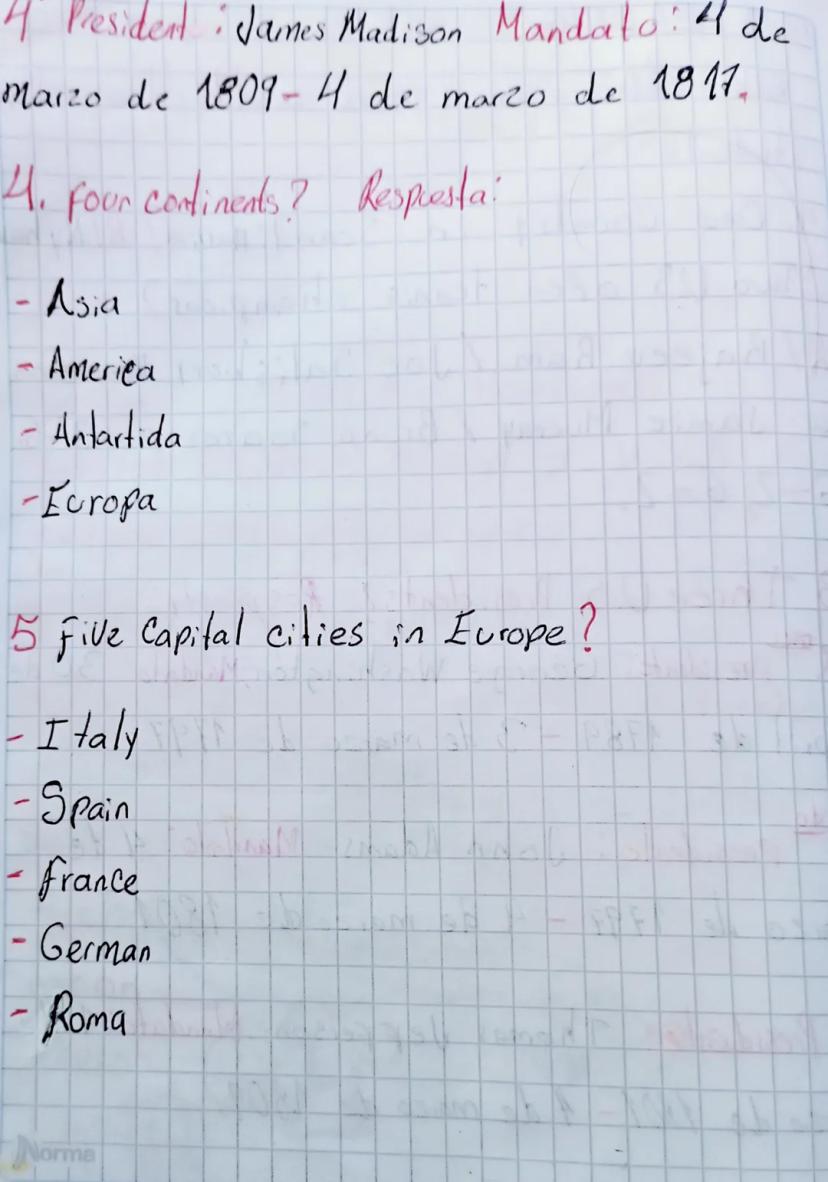 4 President: James Madison Mandato: 4 de
marzo de 1809-4 de marzo de 1817.
4. four continents? Respuesta:
- Asia
- America
- Antartida
- Europa
5 five Capital cities in Europe?
- Italy
- Spain
- france
- German
- Roma
Norma